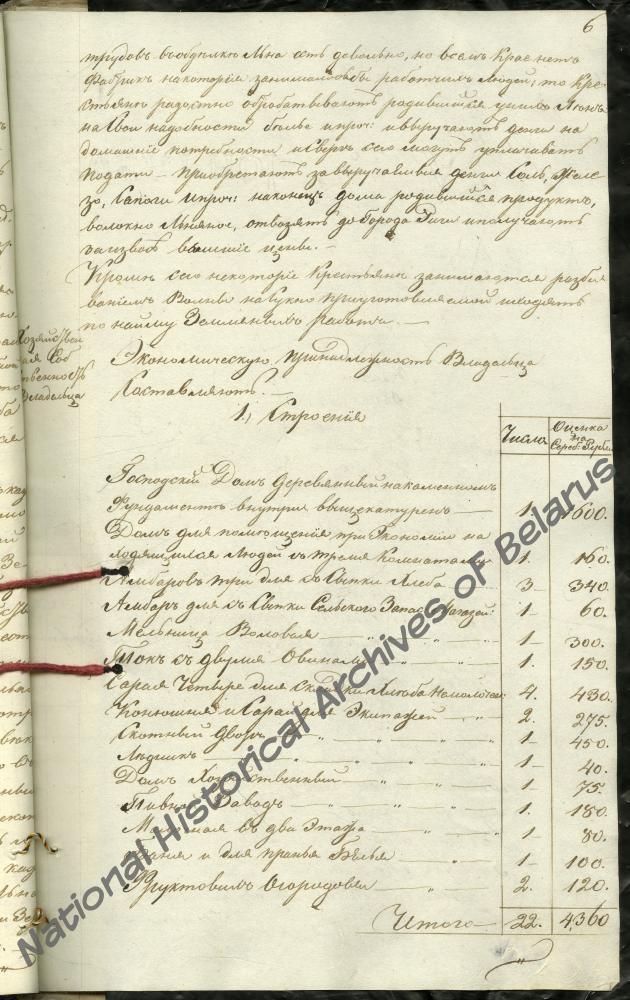 6
трудовъ въ обдѣлкѣ Льна есть довольно, но всемъ Краѣ нетъ
Фабрикъ на которія занимались бы работъ людей; то Кре-
стьяне радостно обработываютъ родившійся у нихъ Ленъ
на Свои надобности бѣлье и проч: и выручаютъ денги на
домашніе потребности и Сверхъ сего могутъ уплачивать
подати — Приобретаютъ за выручавшія денги Соль, Желе-
зо, Сапоги и проч: наконецъ дома родившійся продуктъ,
волокно Льняное, отвозятъ до города Риги и получаютъ
за извозъ цѣны. —
Кромѣ сего некоторіе Крестьяне занимаются разби
ваніемъ Волны на Сукно и ходятъ
по найму Земляныхъ работъ. —
Хозяйствен
ная Соб
ственность
Владельца
Экономическую принадлежность Владѣльца
Составляютъ. —
1.) Строенія
Числа Оценка на Сереб: Рубли
Господскій Домъ деревянный на каменномъ
Фундаментѣ внутри выщекатуренъ — 1. 1600.
Домъ для помещенія при Экономіи на
ходящихся Людей съ тремя Комнатами 1. 160.
Амбаровъ три для съ Сыпки Хлеба — 3 — 340.
Амбаръ для съ Сыпки Сельского Запас: Магазей: 1 — 60.
Мельница Воловая — „ — „ — „ 1 — 300.
Токъ съ двумя Овинами — „ 1. 150.
Сарая Четыре для Складки Хлѣба 4. 430.
Конюшня и Сарай для Экипажей — „ 2. 275.
Скотный Дворъ — „ — „ 1 — 450.
Ледникъ — „ 1 — 40.
Домъ Хозяйственный — „ — „ 1 — 75.
Пивной Заводъ — „ — „ — „ 1. 180.
въ два Этажа — „ 1 — 80.
Баня и для пранья Бѣлья — „ 1 — 100.
Фруктовымъ Огородовъ — „ 2. 120.
Итого — 22. 4,360
National Historical Archives of Belarus